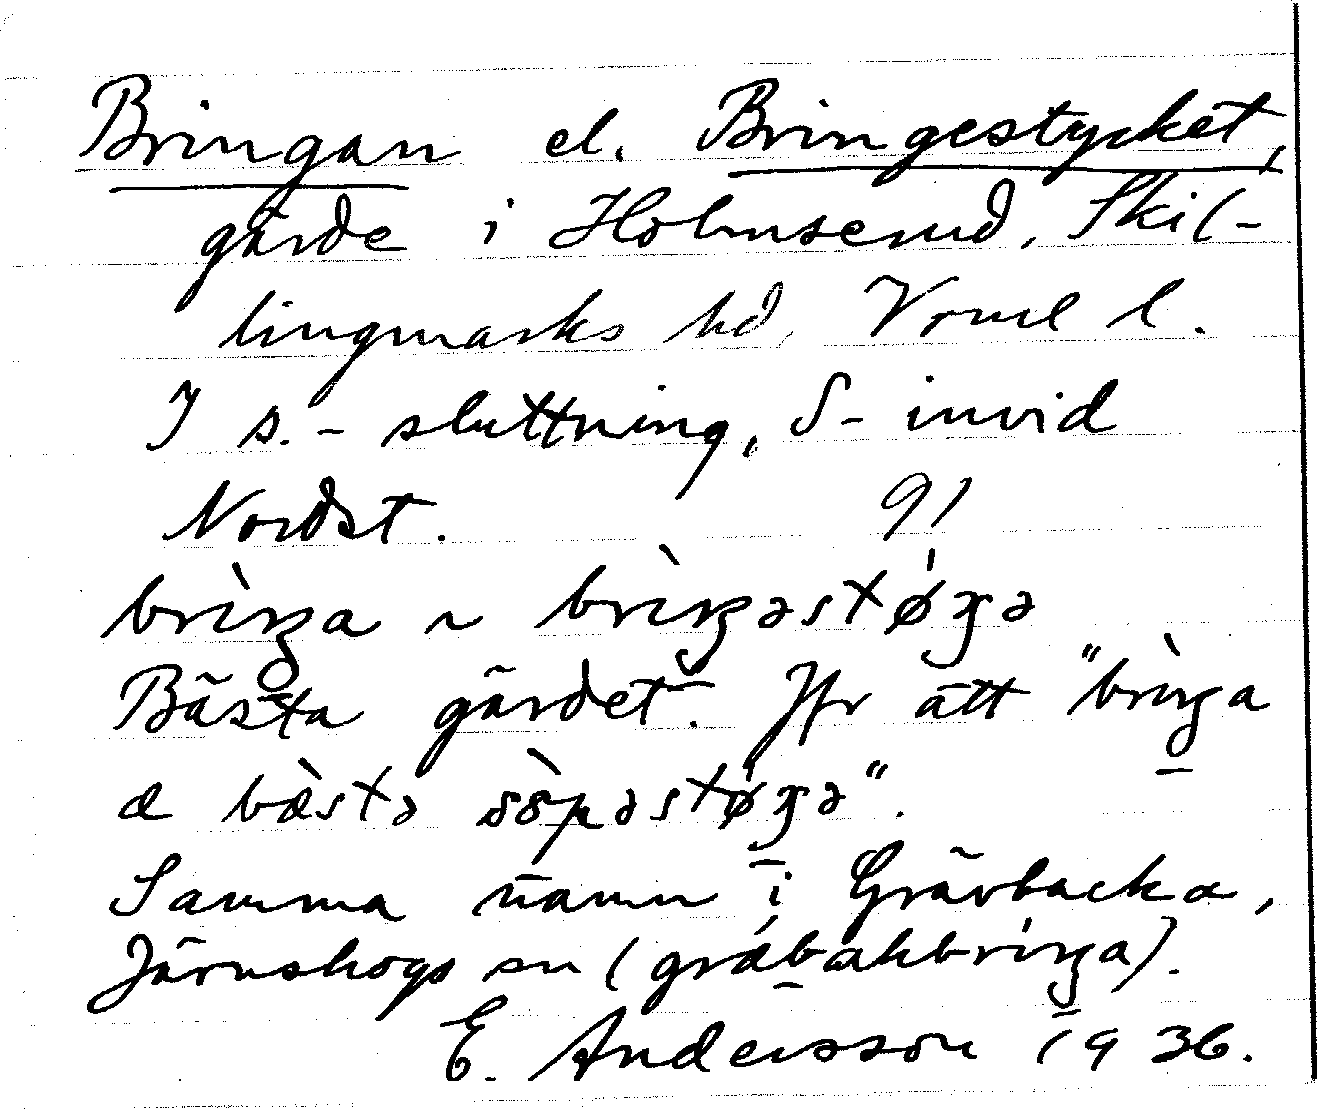 Bringan el. Bringestycket,
gärde i Holmserud, Skil-
lingmarks hd, Vrml l.
I s.-sluttning, S-invid
Nordst. 91
brìŋa ~ brìŋəstø̀ʒə
Bästa gärdet. Jfr att "brìŋa
æ bæ̀stə sòpəstøʒə".
Samma namn i Grävbacka,
Järnskogs sn (gräbakbriŋa).
E. Andersson 1936.